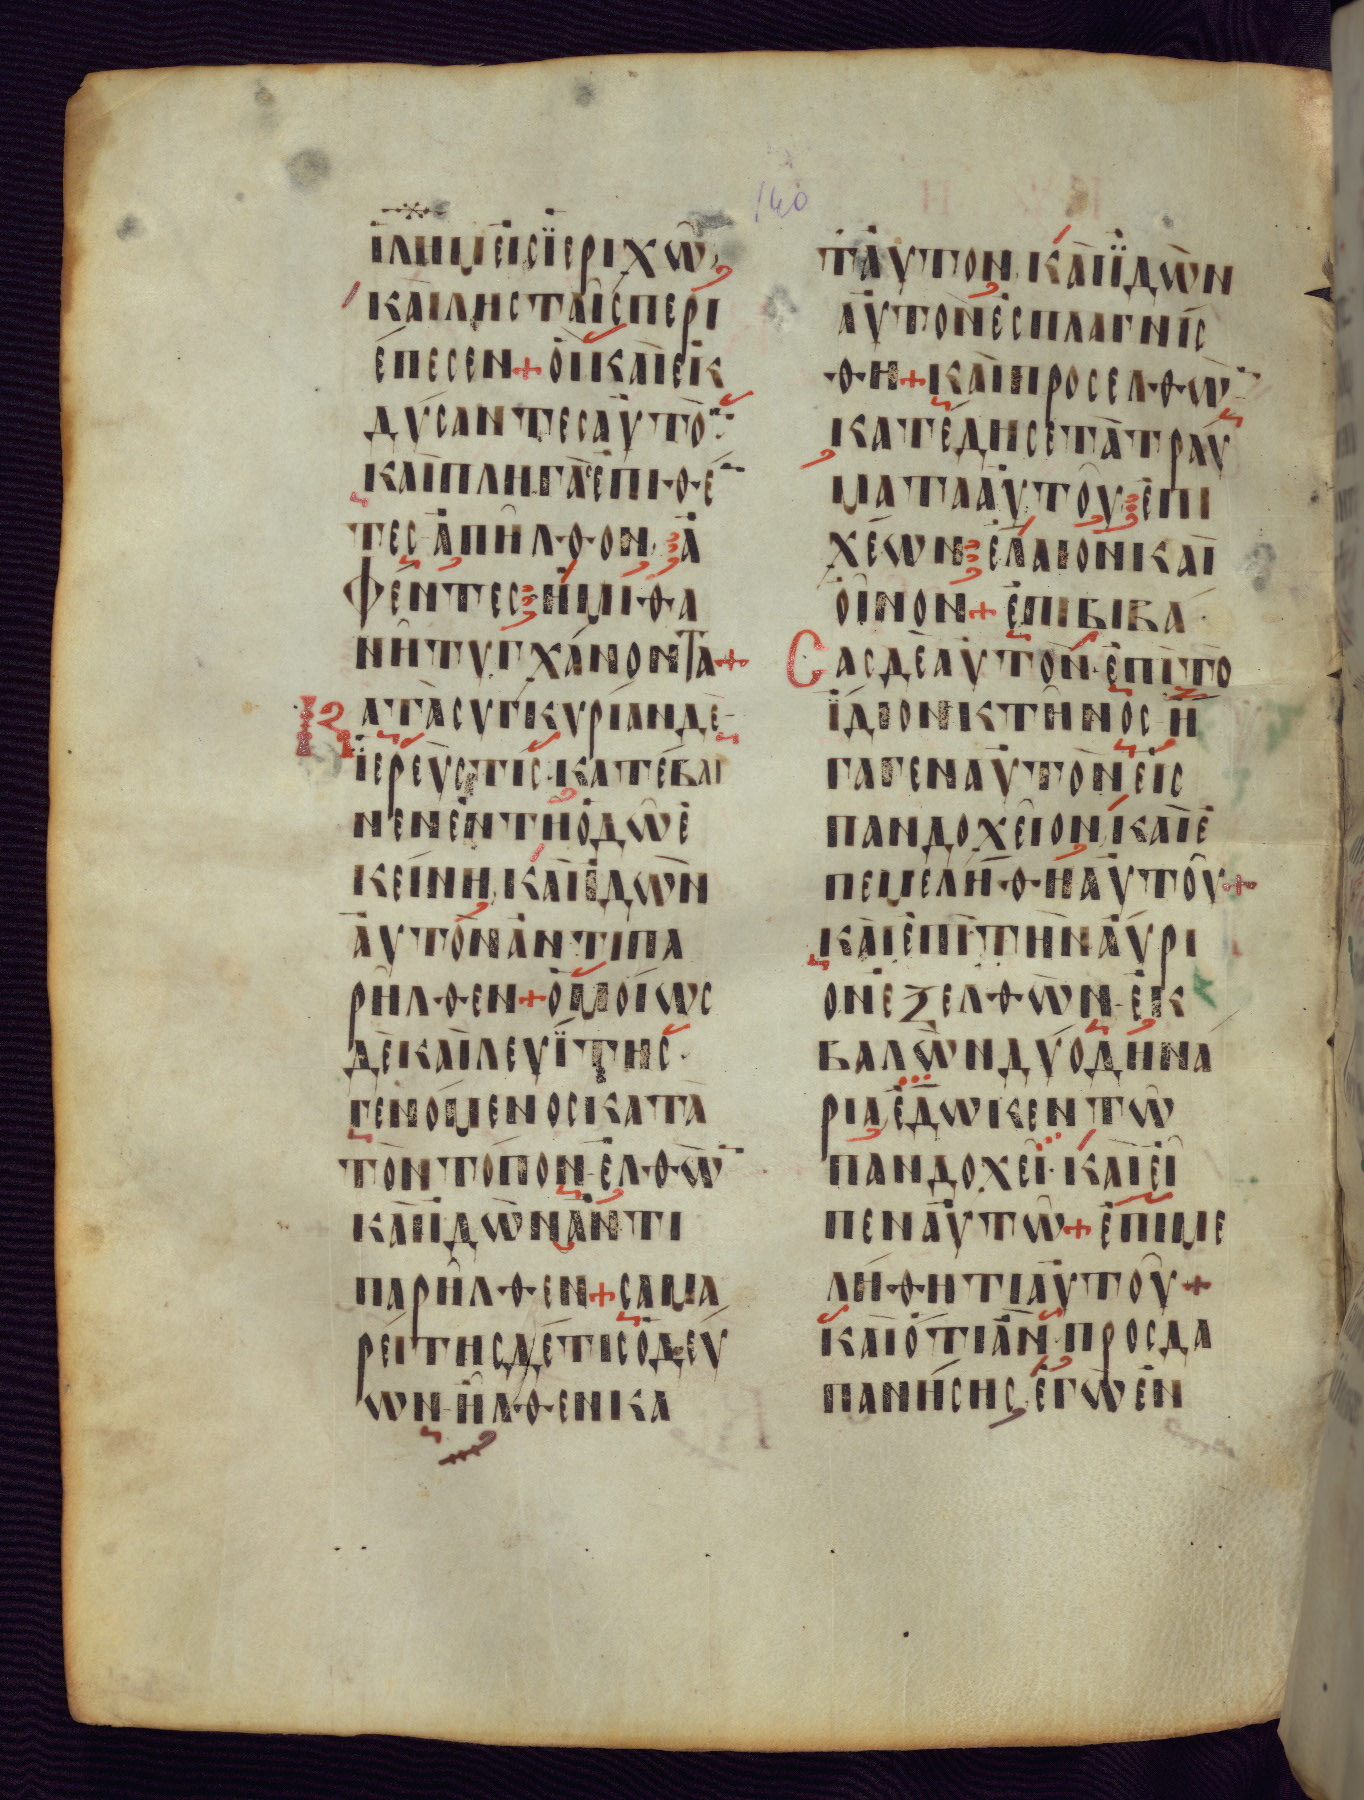 140
ΙΛΗΜΕΙΣΪΕΡΙΧΩ
ΚΑΙΛΗΣΤΑΙΣΠΕΡΙ
ΕΠΕΣΕΝ+ΟΙΚΑΙΕΚ
ΔΥΣΑΝΤΕΣΑΥΤΟ
ΚΑΙΠΛΗΓΑΣΕΠΙΘΕ
ΤΕΣΑΠΗΛΘΟΝ·Α
ΦΕΝΤΕΣΗΜΙΘΑ
ΝΗΤΥΓΧΑΝΟΝΤΑ+
ΚΑΤΑΣΥΓΚΥΡΙΑΝΔΕ
ΪΕΡΕΥΣΤΙΣ·ΚΑΤΕΒΑΙ
ΝΕΝΕΝΤΗΟΔΩΕ
ΚΕΙΝΗ·ΚΑΙΪΔΩΝ
ΑΥΤΟΝΑΝΤΙΠΑ
ΡΗΛΘΕΝ+ΟΜΟΙΩΣ
ΔΕΚΑΙΛΕΥΪΤΗΣ·
ΓΕΝΟΜΕΝΟΣΚΑΤΑ
ΤΟΝΤΟΠΟΝ·ΕΛΘΩ
ΚΑΙΪΔΩΝΑΝΤΙ
ΠΑΡΗΛΘΕΝ+ΣΑΜΑ
ΡΕΙΤΗΣΔΕΤΙΣΟΔΕΥ
ΩΝ·ΗΛΘΕΝΚΑ
ΤΑΥΤΟΝ·ΚΑΙΪΔΩΝ
ΑΥΤΟΝΕΣΠΛΑΓΝΙΣ
ΘΗ+ΚΑΙΠΡΟΣΕΛΘΩ
ΚΑΤΕΔΗΣΕΤΑΤΡΑΥ
ΜΑΤΑΑΥΤΟΥΕΠΙ
ΧΕΩΝΕΛΑΙΟΝΚΑΙ
ΟΙΝΟΝ+ΕΠΙΒΙΒΑ
ΣΑΣΔΕΑΥΤΟΝ·ΕΠΙΤΟ
ΪΔΙΟΝΚΤΗΝΟΣ·Η
ΓΑΓΕΝΑΥΤΟΝΕΙΣ
ΠΑΝΔΟΧΕΙΟΝ·ΚΑΙΕ
ΠΕΜΕΛΗΘΗΑΥΤΟΥ+
ΚΑΙΕΠΙΤΗΝΑΥΡΙ
ΟΝΕΞΕΛΘΩΝ·ΕΚ
ΒΑΛΩΝΔΥΟΔΗΝΑ
ΡΙΑΕΔΩΚΕΝΤΩ
ΠΑΝΔΟΧΕΙ·ΚΑΙΕΙ
ΠΕΝΑΥΤΩ+ΕΠΙΜΕ
ΛΗΘΗΤΙΑΥΤΟΥ+
ΚΑΙΟΤΙΑΝ·ΠΡΟΣΔΑ
ΠΑΝΗΣΗΣ·ΕΓΩΕΝ